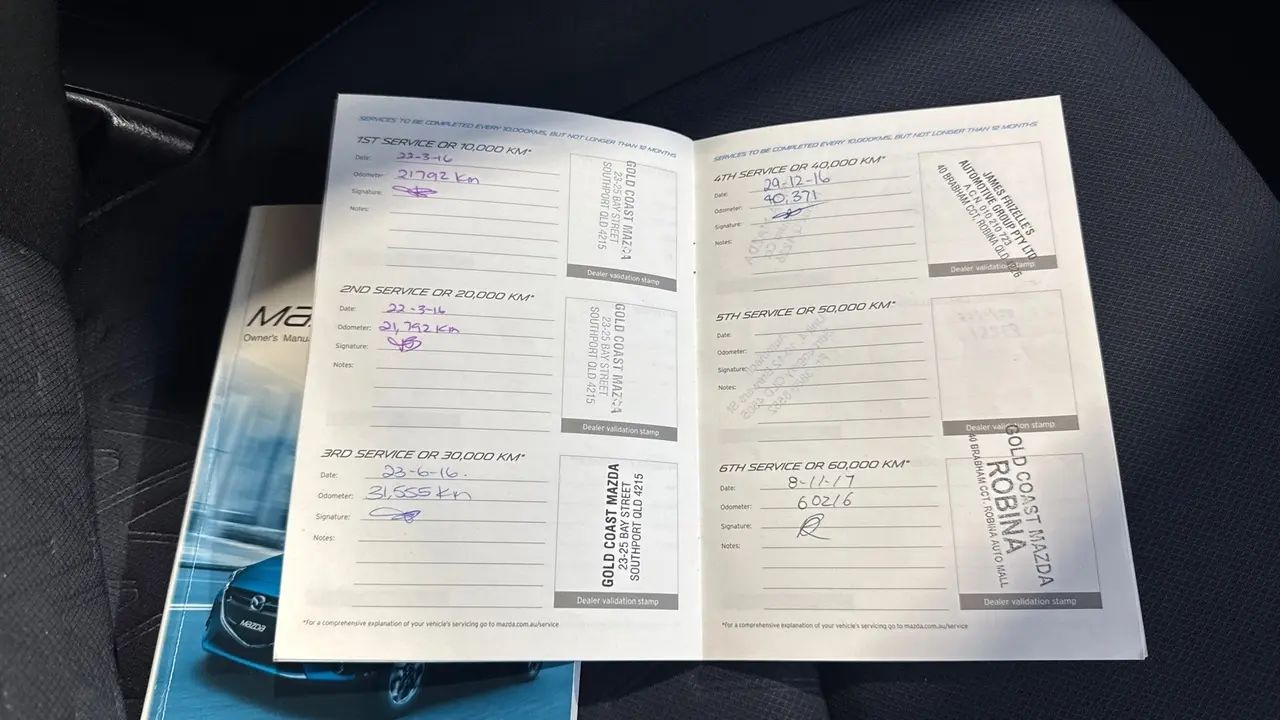 SERVICES TO BE COMPLETED EVERY 10,000KMS, BUT NOT LONGER THAN 12 MONTHS
1ST SERVICE OR 10,000 KM*
Date: 22-3-16
Odometer: 21792 Km
Signature:
Notes:
GOLD COAST MAZDA
23-25 BAY STREET
SOUTHPORT QLD 4215
Dealer validation stamp
2ND SERVICE OR 20,000 KM*
Date: 22-3-16
Odometer: 21,792 Km
Signature:
Notes:
GOLD COAST MAZDA
23-25 BAY STREET
SOUTHPORT QLD 4215
Dealer validation stamp
3RD SERVICE OR 30,000 KM*
Date: 23-6-16.
Odometer: 31,555 Km
Signature:
Notes:
GOLD COAST MAZDA
23-25 BAY STREET
SOUTHPORT QLD 4215
Dealer validation stamp
*For a comprehensive explanation of your vehicle's servicing go to mazda.com.au/service
SERVICES TO BE COMPLETED EVERY 10,000KMS, BUT NOT LONGER THAN 12 MONTHS
4TH SERVICE OR 40,000 KM*
Date: 29-12-16
Odometer: 40,371
Signature:
Notes:
JAMES FRIZELLE'S
AUTOMOTIVE GROUP PTY LTD
A.C.N. 010 010 723
40 BRABHAM CCT, ROBINA QLD
Dealer validation stamp
5TH SERVICE OR 50,000 KM*
Date:
Odometer:
Signature:
Notes:
Dealer validation stamp
6TH SERVICE OR 60,000 KM*
Date: 8-11-17
Odometer: 60216
Signature:
Notes:
GOLD COAST MAZDA
ROBINA
40 BRABHAM CCT, ROBINA AUTO MALL
Dealer validation stamp
*For a comprehensive explanation of your vehicle's servicing go to mazda.com.au/service
Owner's
mazda